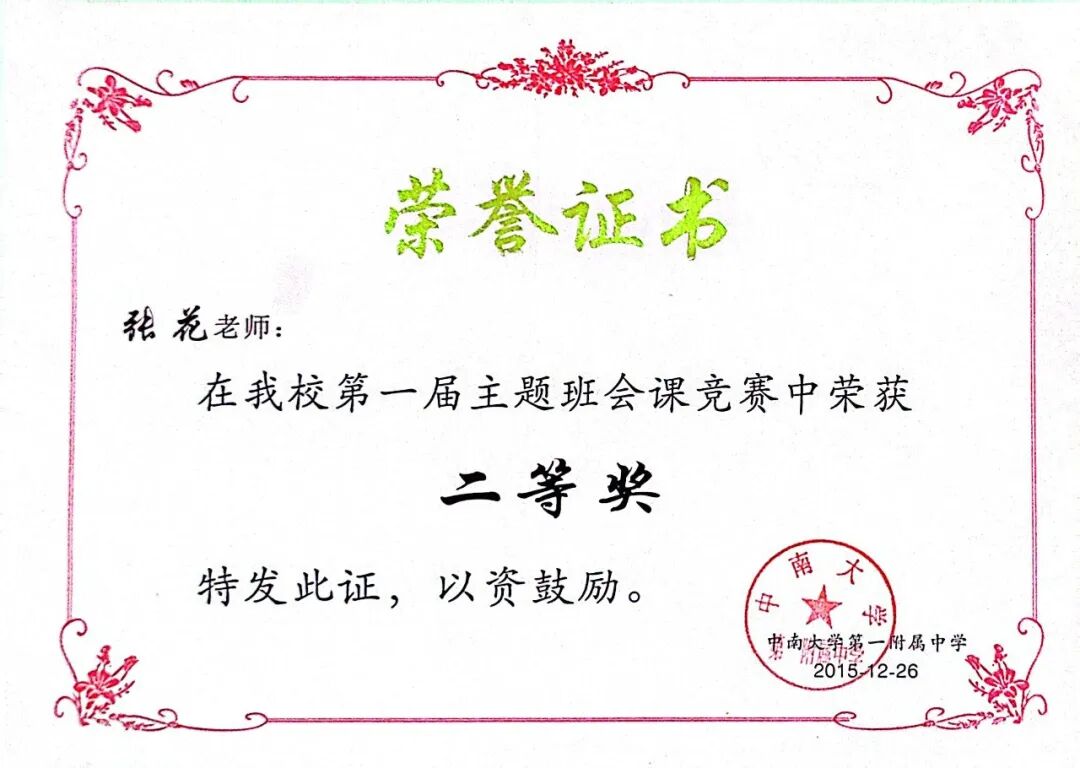 荣誉证书
张花老师：
在我校第一届主题班会课竞赛中荣获
二等奖
特发此证，以资鼓励。
中南大学
中南大学第一附属中学
2015-12-26